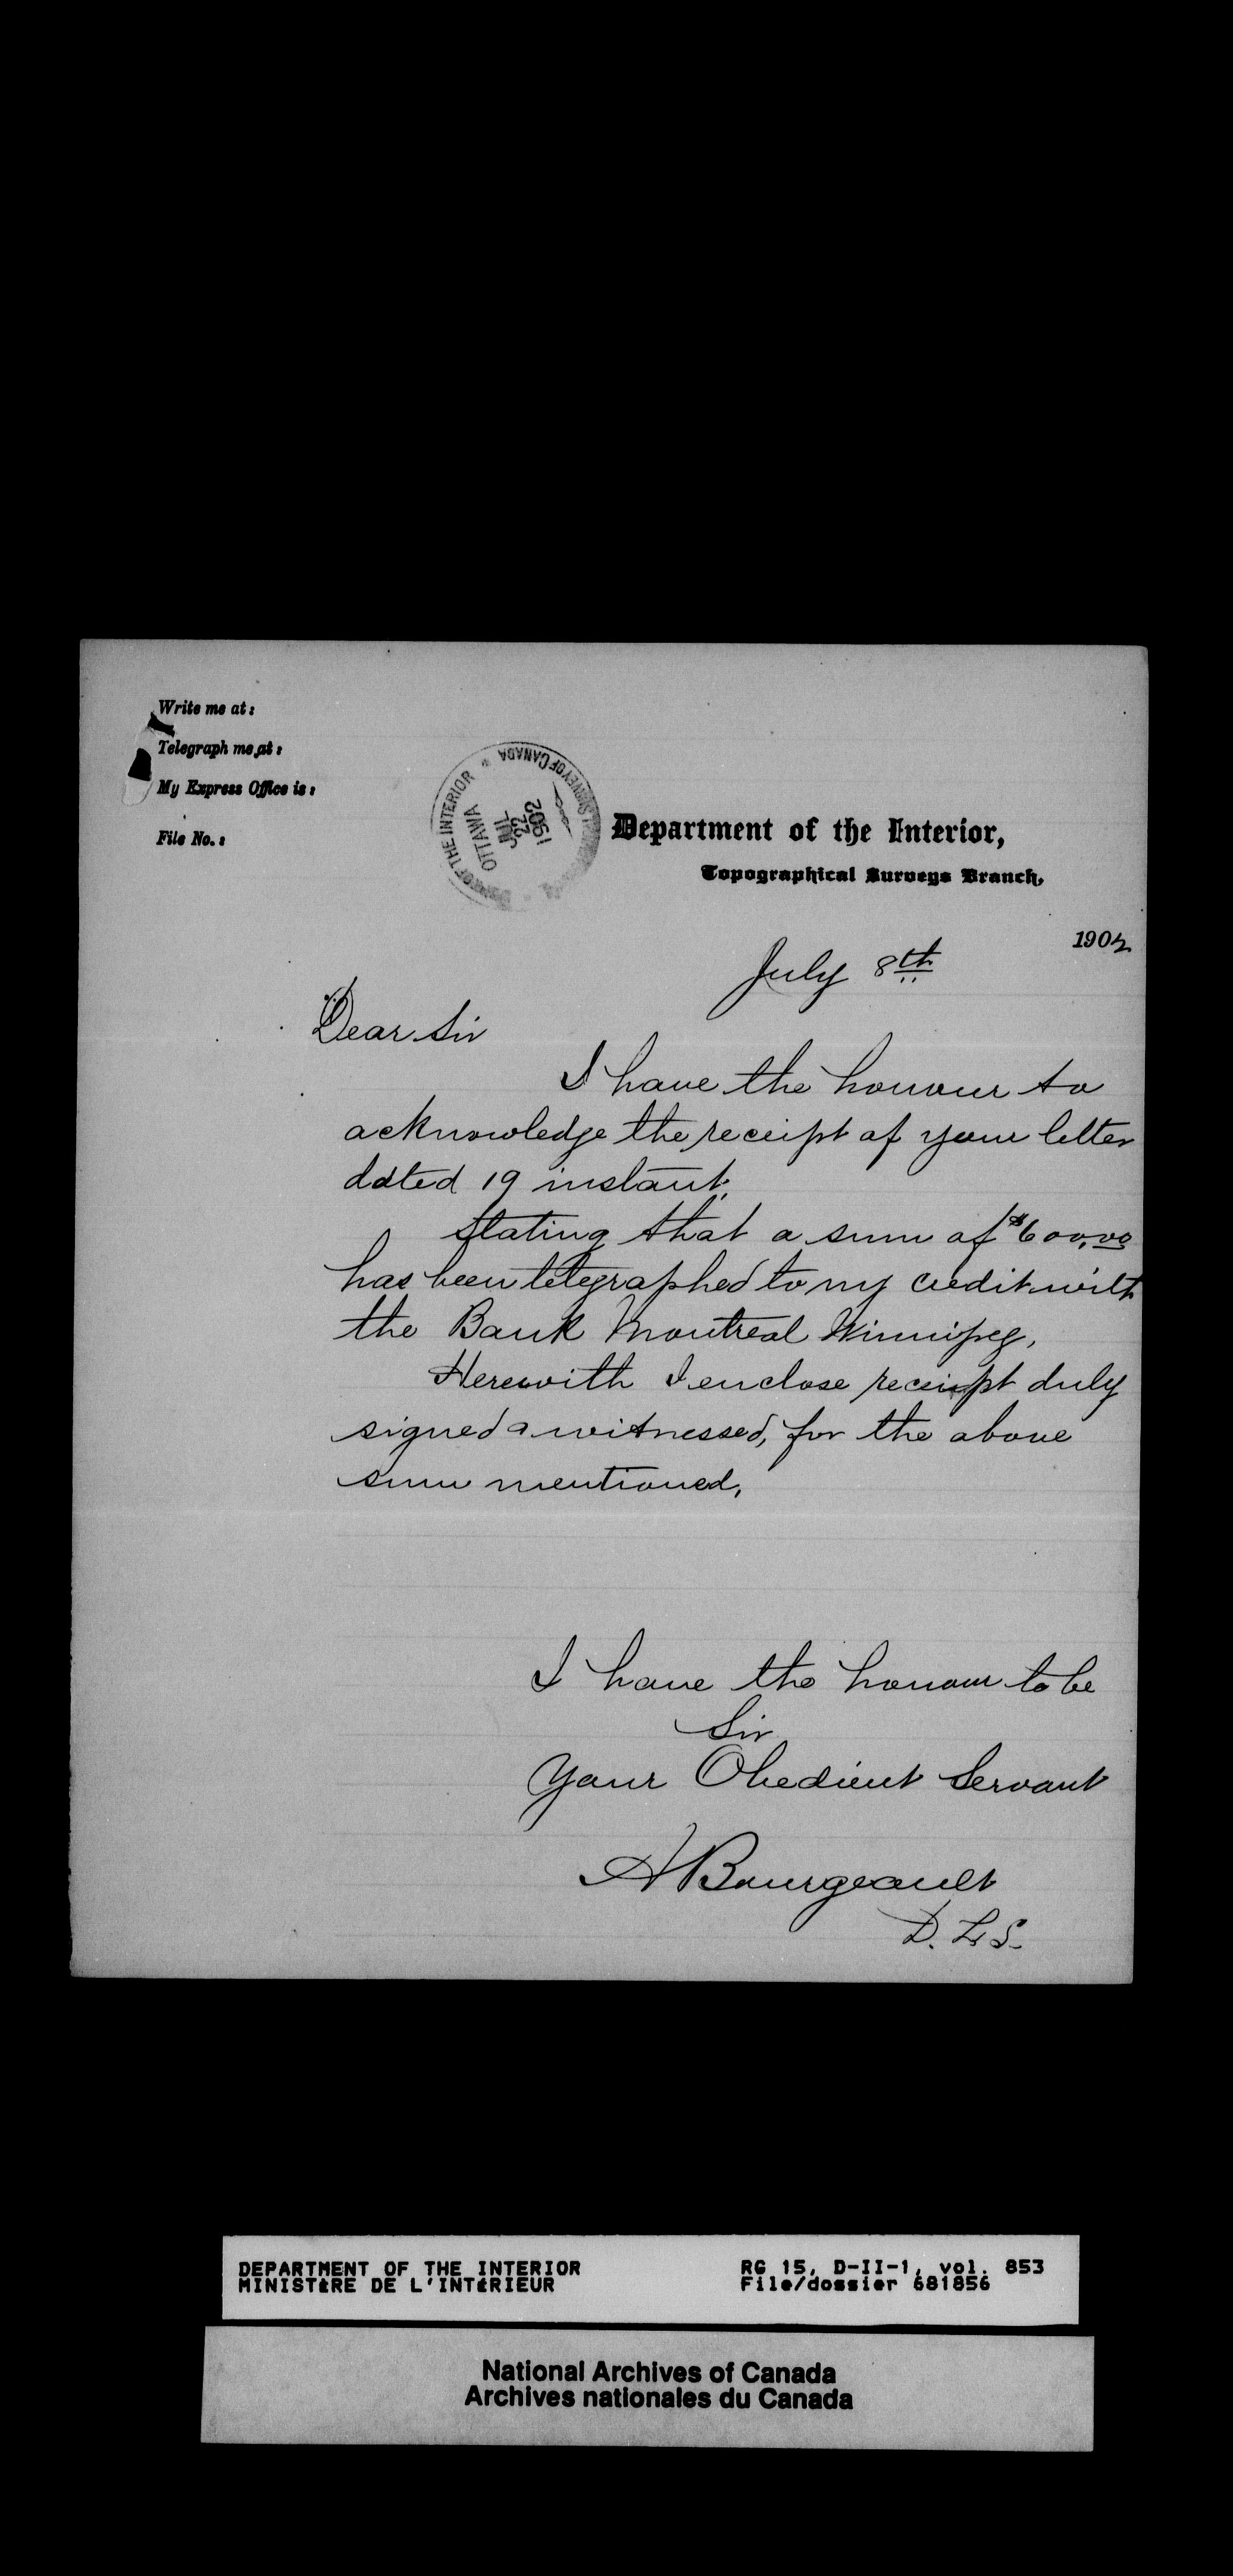 Write me at:
Telegraph me at:
My Express Office is:
File No.:
OF THE INTERIOR * SURVEY OF CANADA
OTTAWA
JUL
22
1902
Department of the Interior,
Topographical Surveys Branch,
1902
July 8th
Dear Sir
I have the honour to
acknowledge the receipt of your letter
dated 19 instant.
Stating that a sum of $600,00
has been telegraphed to my credit with
the Bank Montreal Winnipeg,
Herewith I enclose receipt duly
signed & witnessed, for the above
sum mentioned,
I have the honour to be
Sir
Your Obedient Servant
A Bourgeault
D. L. S.
DEPARTMENT OF THE INTERIOR
MINISTÈRE DE L'INTÉRIEUR
RG 15, D-II-1, vol. 853
File/dossier 681856
National Archives of Canada
Archives nationales du Canada